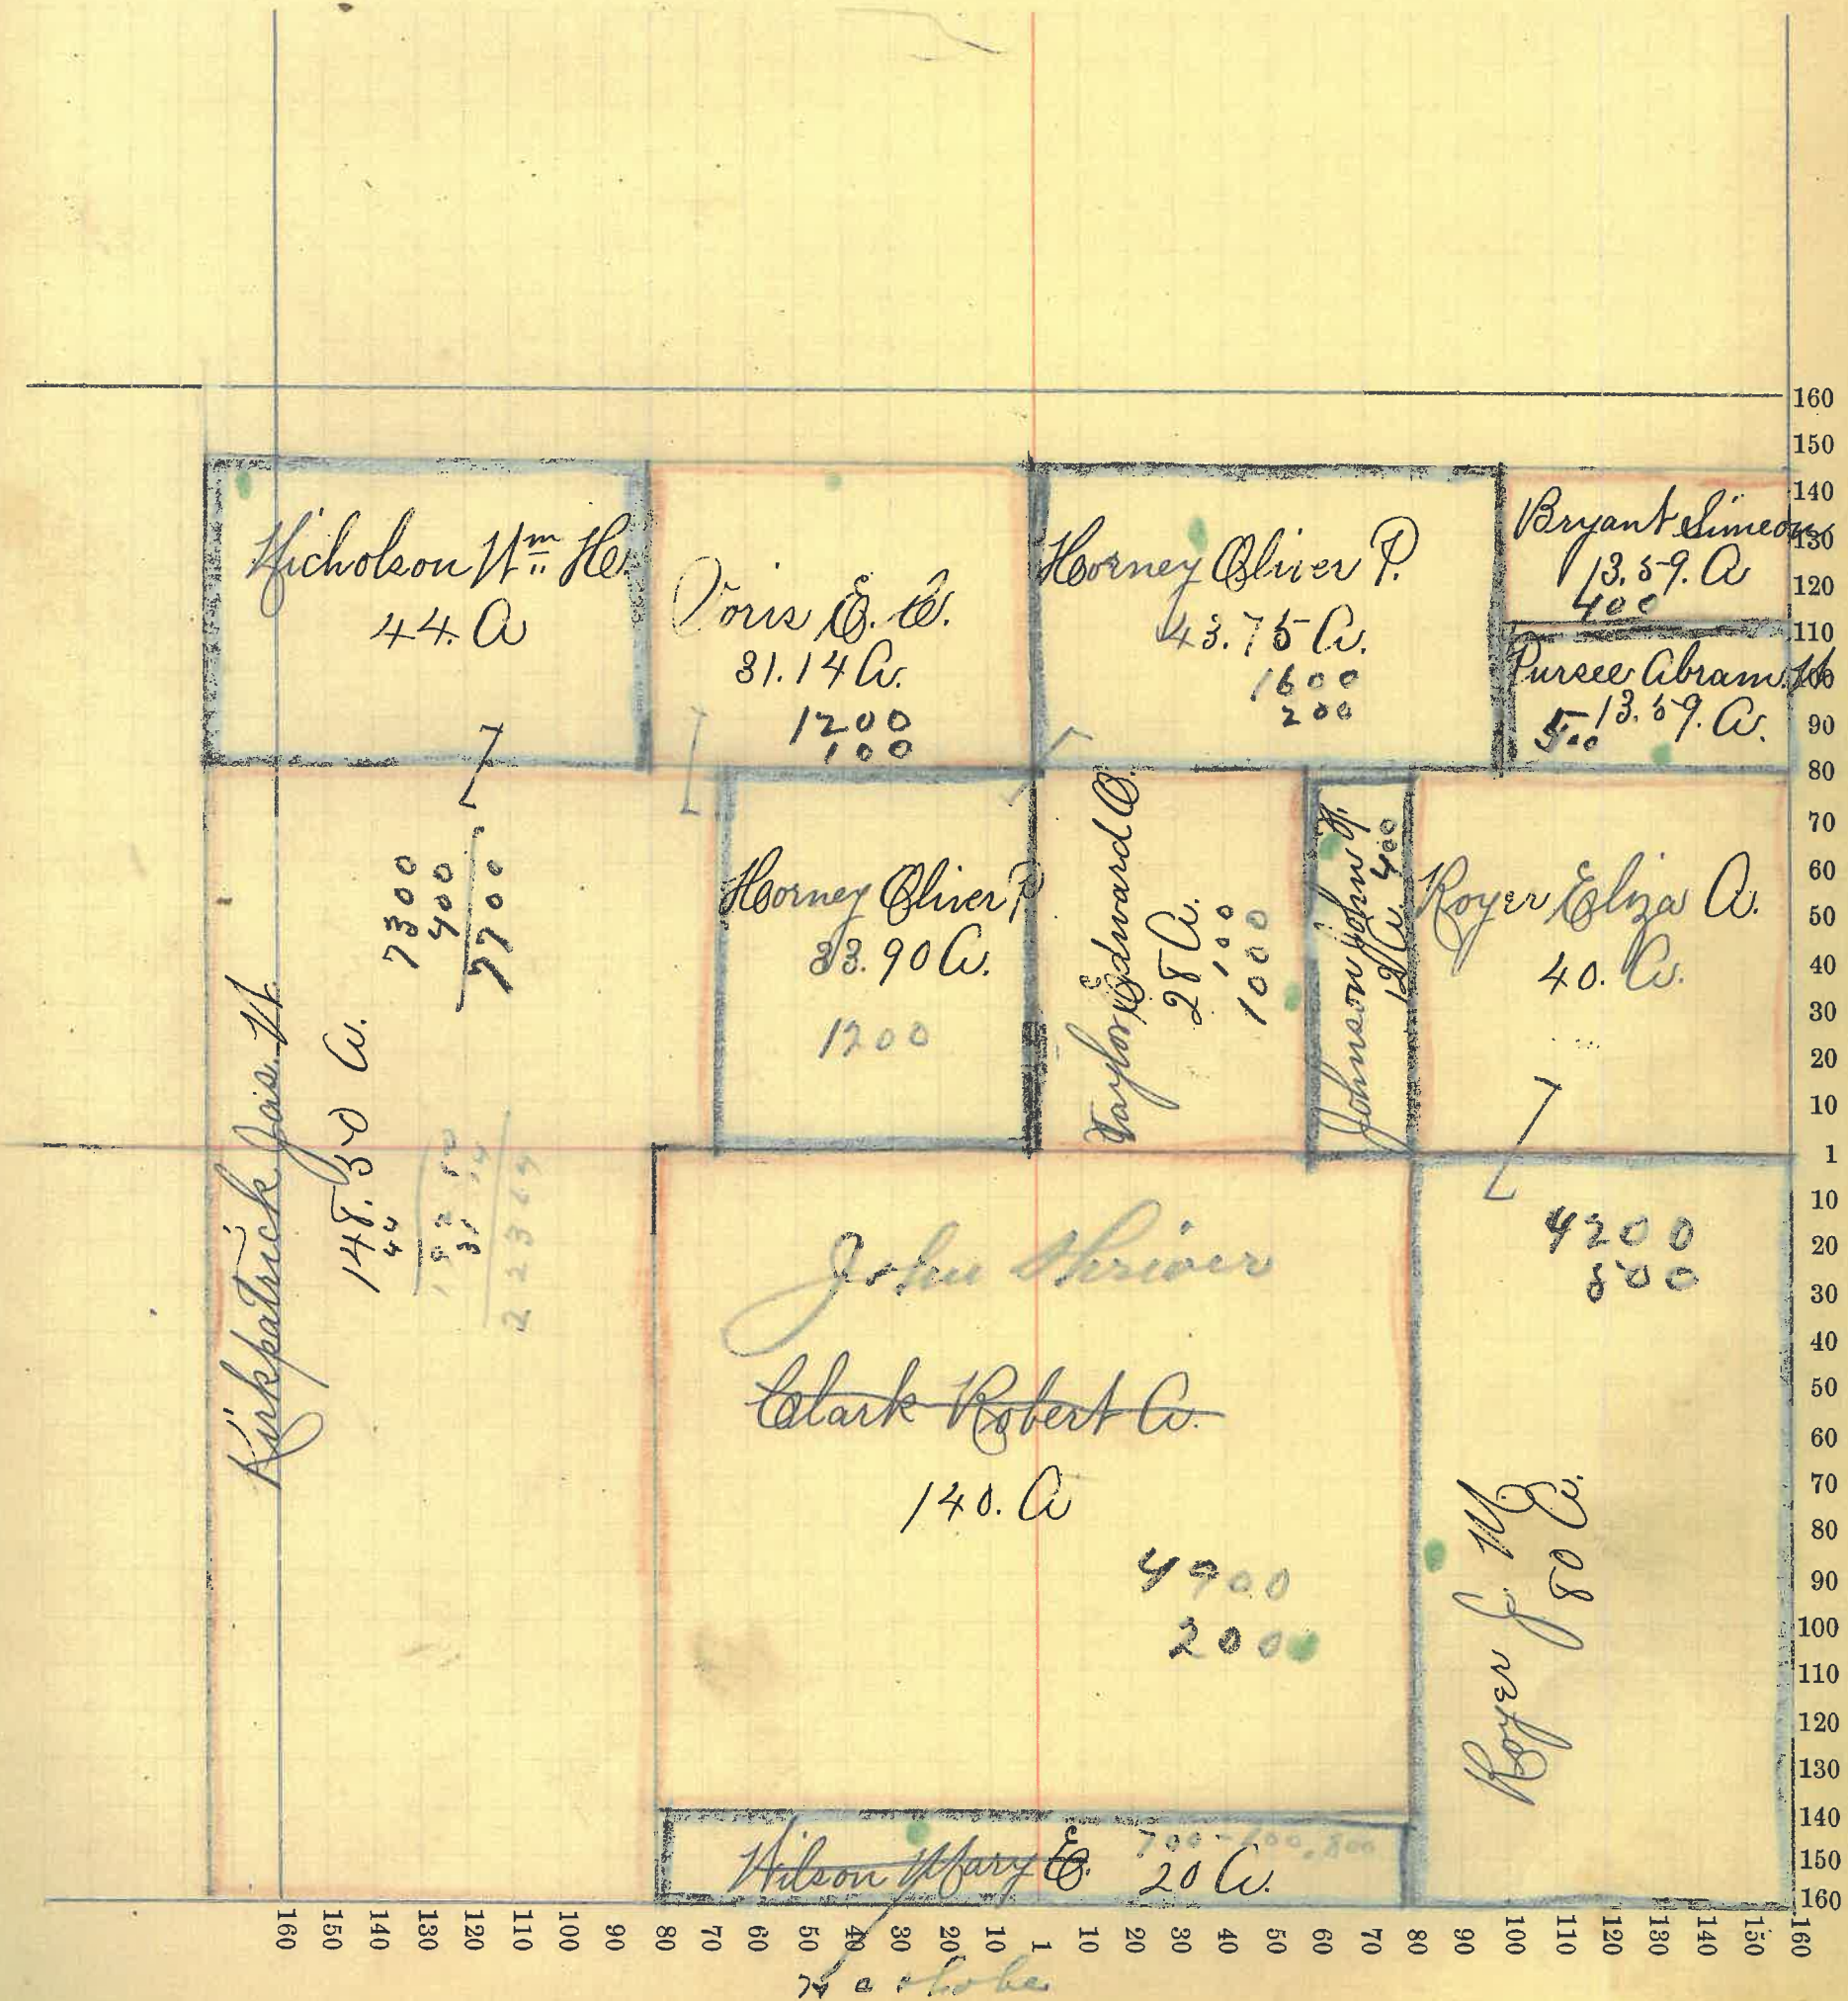 Nicholson Wm. H.
44. A
Voris E. C.
31.14 A.
1200
100
Horney Oliver P.
43.75 A.
1600
200
Bryant Simeon
13.59. A
400
Pursee Abram
13.59. A.
500
7300
400
7700
Kirkpatrick Jas. W.
148.50 A.
44
192 50
31 14
223 64
Horney Oliver P
33.90 A.
1200
Taylor Edward O.
28 A.
100
1000
Johnson John W.
12 A. 400
Royer Eliza A.
40. A.
John Shriver
Clark Robert A.
140. A
4900
200
4200
500
Royer J. M.
80 A.
Wilson Mary E.
700 - 100, 800
20 A.
160
150
140
130
120
110
100
90
80
70
60
50
40
30
20
10
1
10
20
30
40
50
60
70
80
90
100
110
120
130
140
150
160
160 150 140 130 120 110 100 90 80 70 60 50 40 30 20 10 1 10 20 30 40 50 60 70 80 90 100 110 120 130 140 150 160